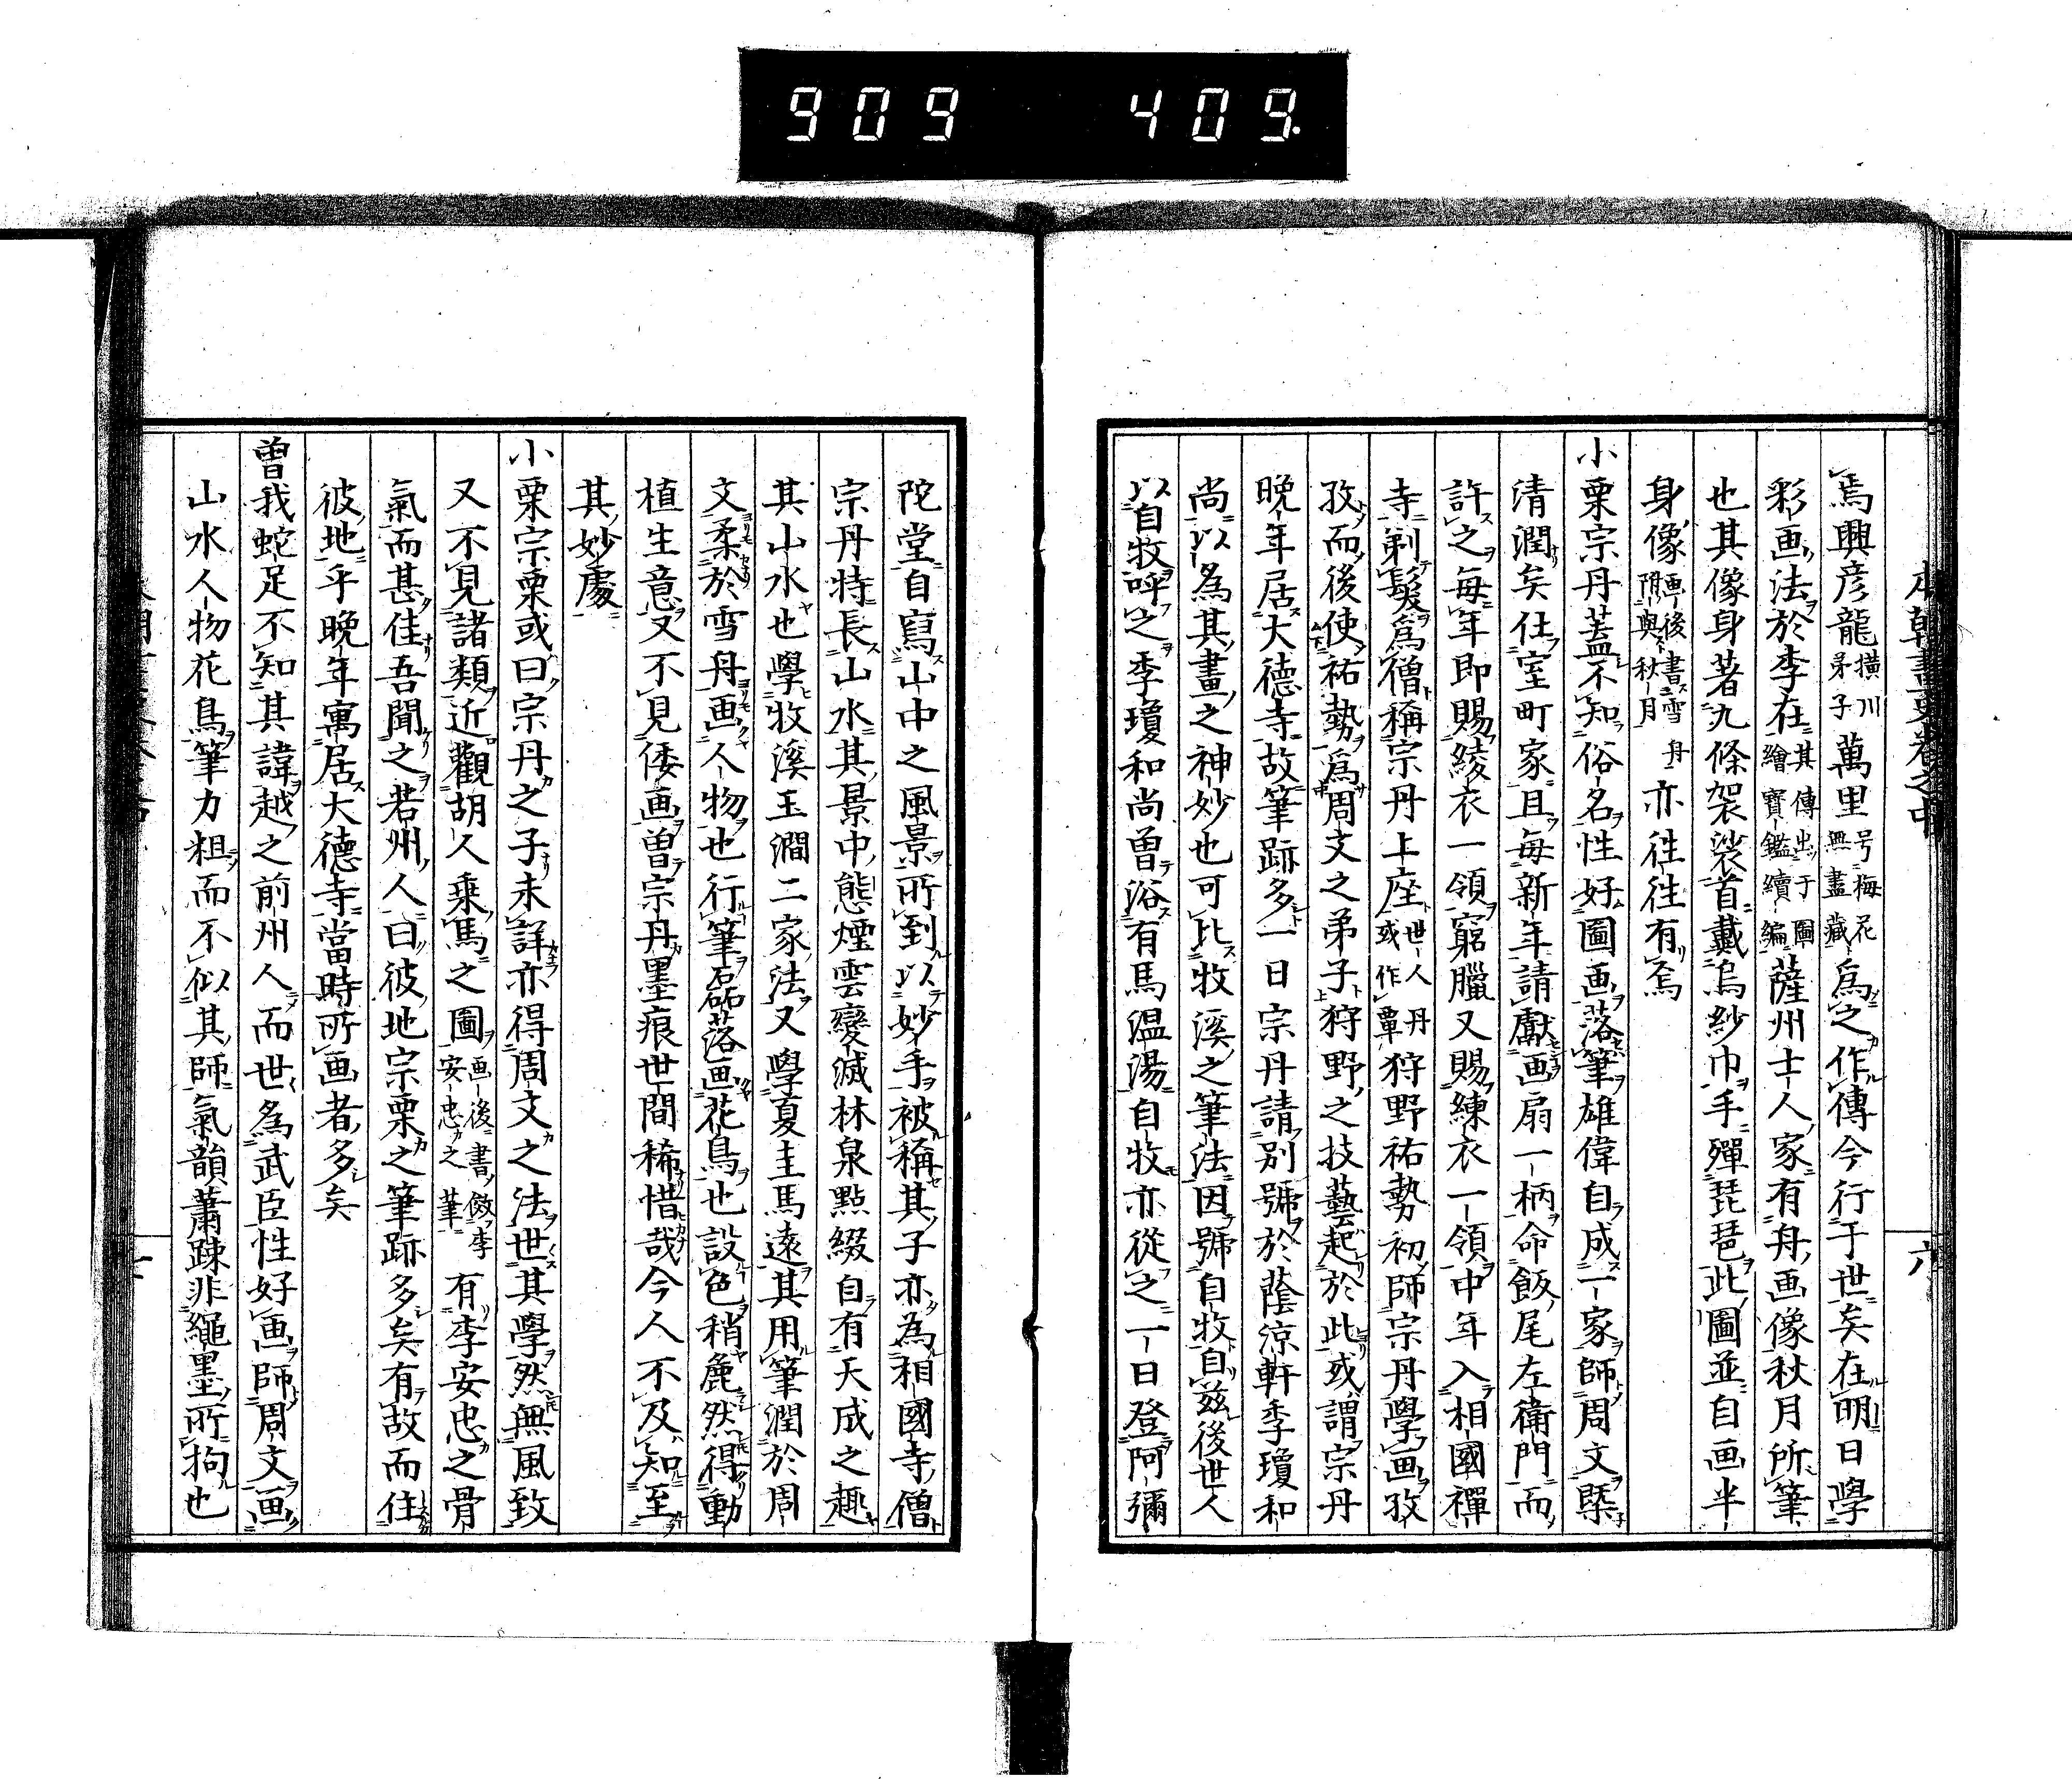 909 409.
本朝畫史卷之中
六
焉興彦龍橫川弟子萬里号梅花無盡藏爲之作傳今行于世矣在明日學
彩画法於李在其傳出于圖繪寶鑑續編薩州士人家有舟画像秋月所筆
也其像身著九條袈裟首戴烏紗巾手殫琵琶此圖並自画半
身像画後書雪舟與秋月亦往往有焉
小栗宗丹蓋不知俗名性好圖画落筆雄偉自成一家師周文槩
清潤矣仕室町家且每新年請獻画扇一柄命飯尾左衛門而
許之每年即賜綾衣一領窮臘又賜練衣一領中年入相國禪
寺剃髮爲僧稱宗丹上座世人丹或作單狩野祐勢初師宗丹學画孜
孜而後使祐勢爲周文之弟子狩野之技藝起於此或謂宗丹
晚年居大德寺故筆跡多一日宗丹請別號於蔭涼軒季瓊和
尚以爲其畫之神妙也可比牧溪之筆法因號自牧自茲後世人
以自牧呼之季瓊和尚曽浴有馬温湯自牧亦從之一日登阿彌
陀堂自寫山中之風景所到以妙手被稱其子亦為相國寺僧
宗丹特長山水其景中態煙雲變滅林泉點綴自有天成之趣
其山水也學牧溪玉澗二家法又學夏圭馬遠其用筆潤於周
文柔於雪舟画人物也行筆磊落画花鳥也設色稍麁然得動
植生意又不見倭画曽宗丹墨痕世間稀惜哉今人不及知至
其妙處
小栗宗栗或曰宗丹之子未詳亦得周文之法世其學然無風致
又不見諸類近觀胡人乘馬之圖画後書倣李安忠之筆有李安忠之骨
氣而甚佳吾聞之若州人曰彼地宗栗之筆跡多矣有故而住
彼地乎晚年寓居大德寺當時所画者多矣
曽我蛇足不知其諱越之前州人而世為武臣性好画師周文画
山水人物花鳥筆力粗而不似其師氣韻蕭踈非繩墨所拘也